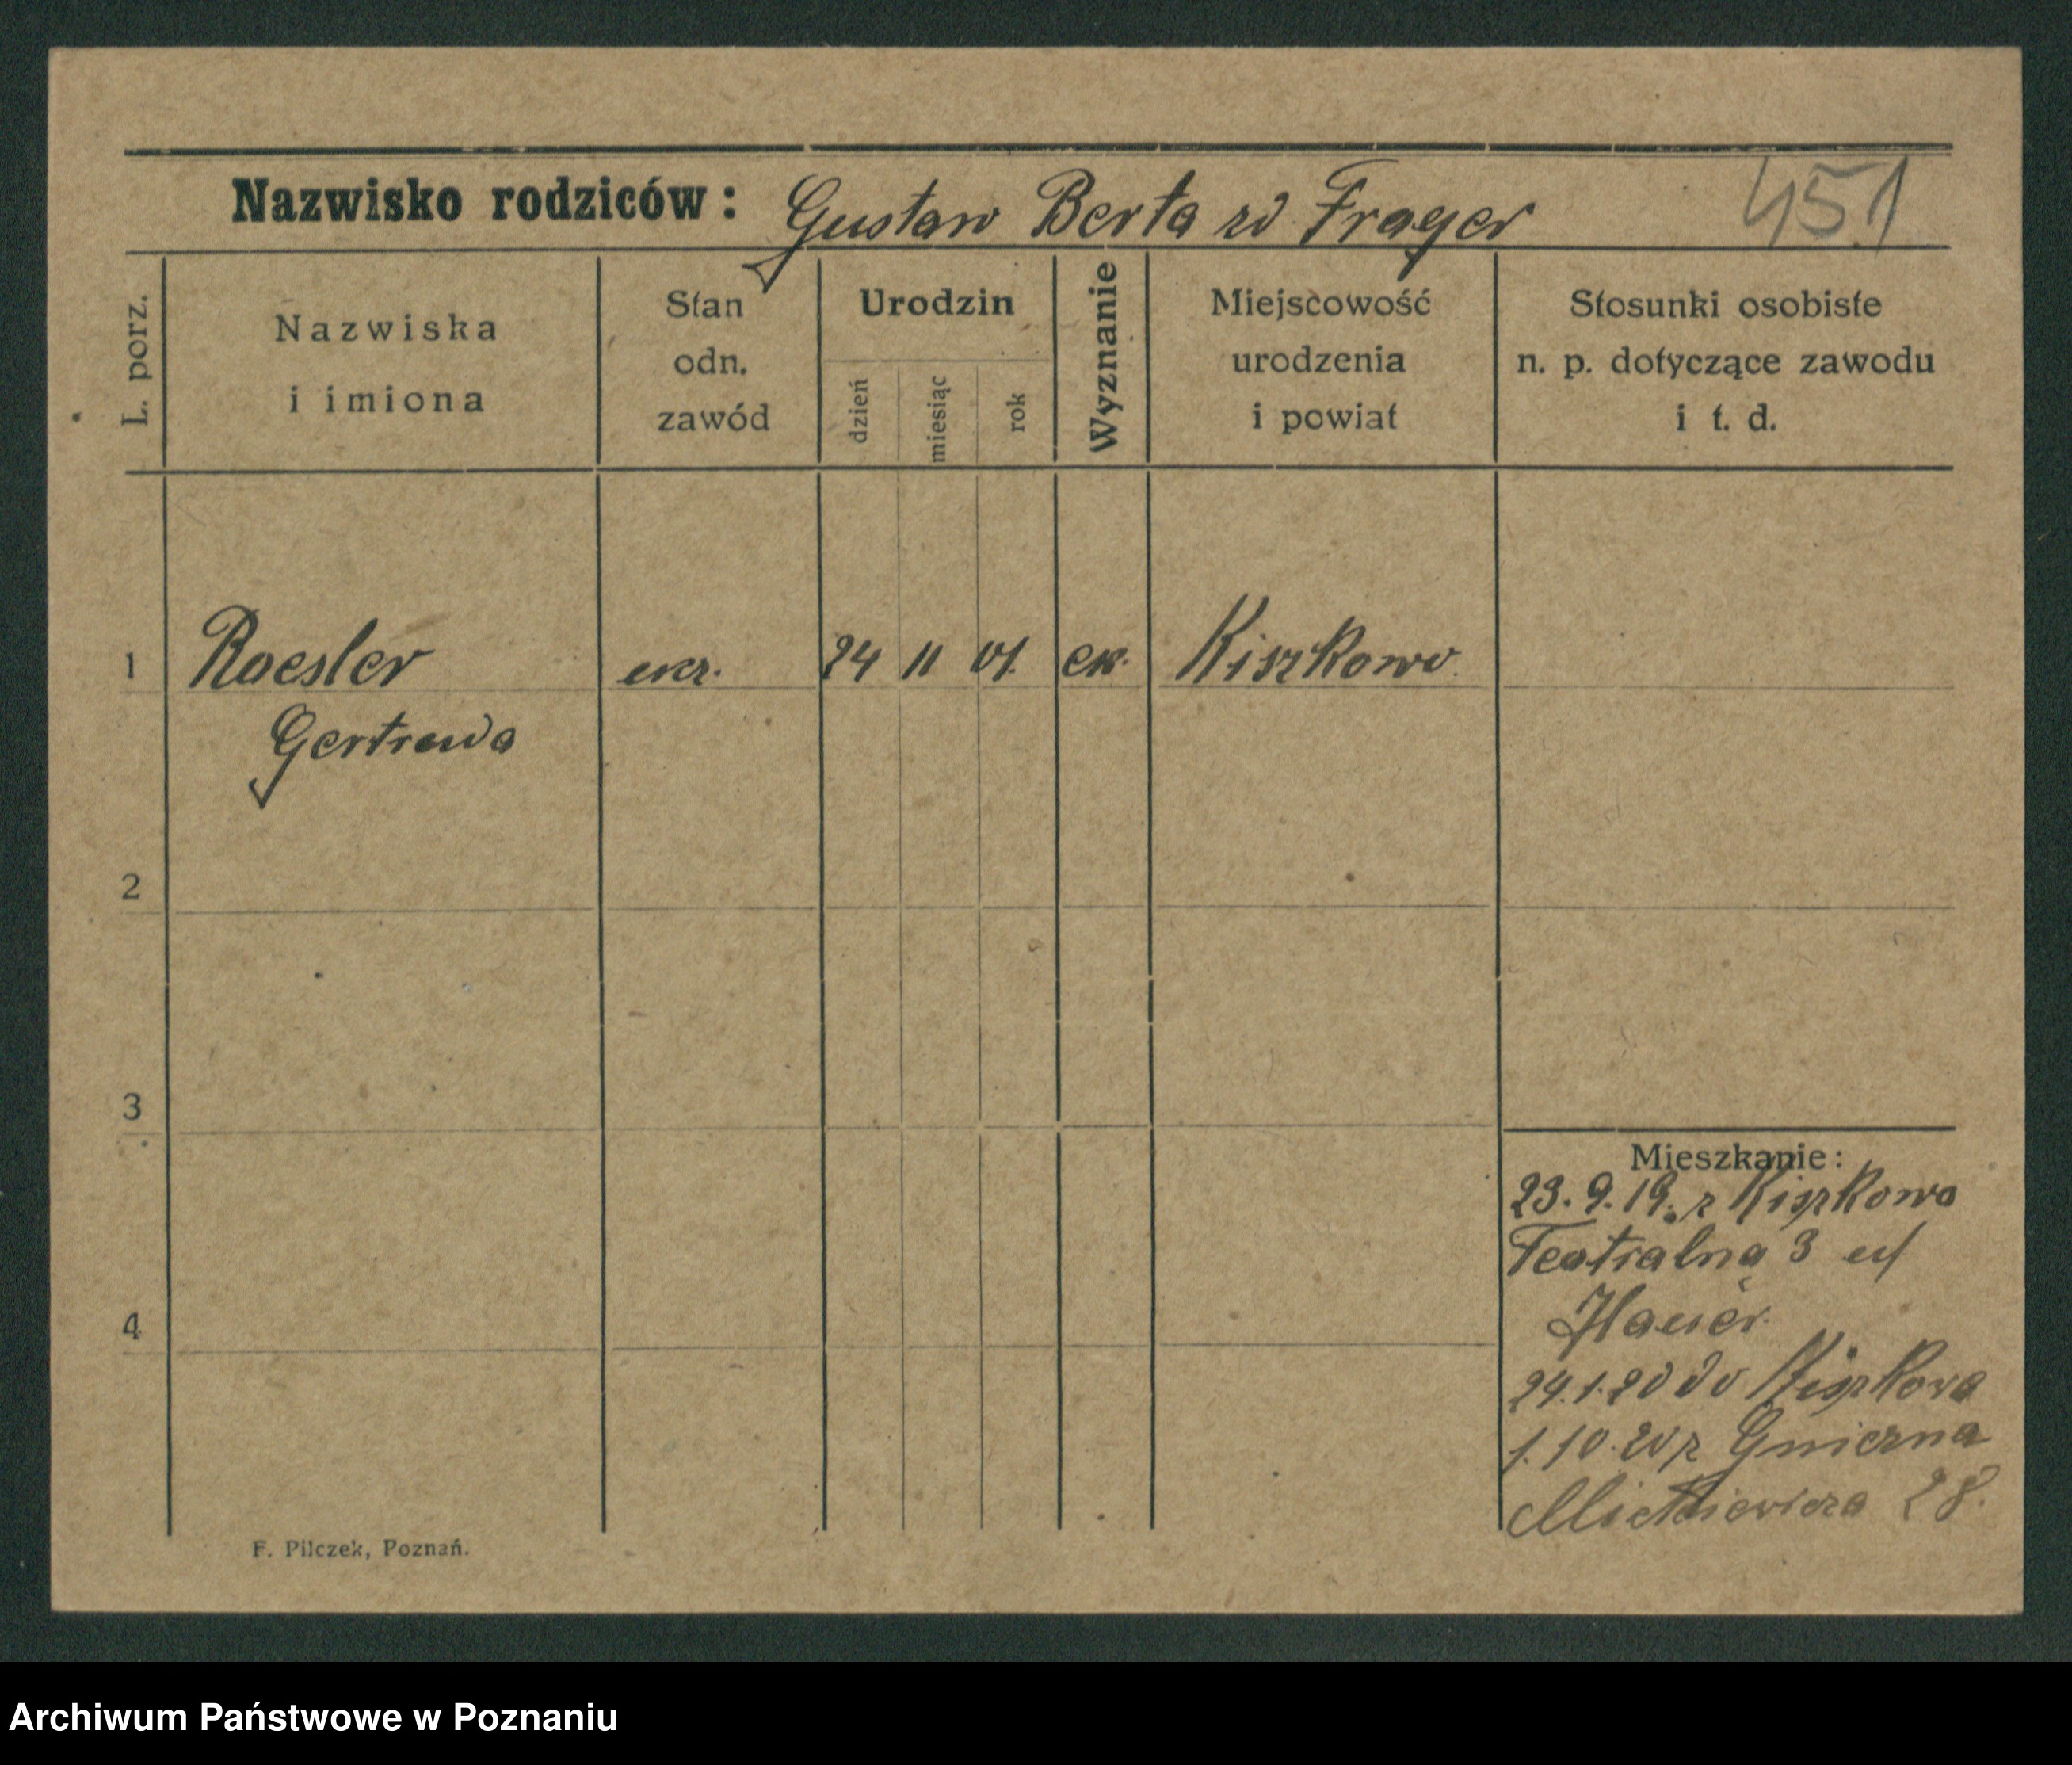 451
Nazwisko rodziców: Gustaw Berta rd Frager
L. porz.
Nazwiska
i imiona
Stan
odn.
zawód
Urodzin
dzień
miesiąc
rok
Wyznanie
Miejscowość
urodzenia
i powiat
Stosunki osobiste
n. p. dotyczące zawodu
i t. d.
1 Roesler 24 11 01. Kiszkowo.
Gertruda
2
3
4
Mieszkanie:
23.9.19. z Kiszkowa
Teatralna 3
Hauer
24.1.20 do Kiszkowa
1.10.20 z Gniezna
Mickiewicza 28.
F. Pilczek, Poznań.
Archiwum Państwowe w Poznaniu